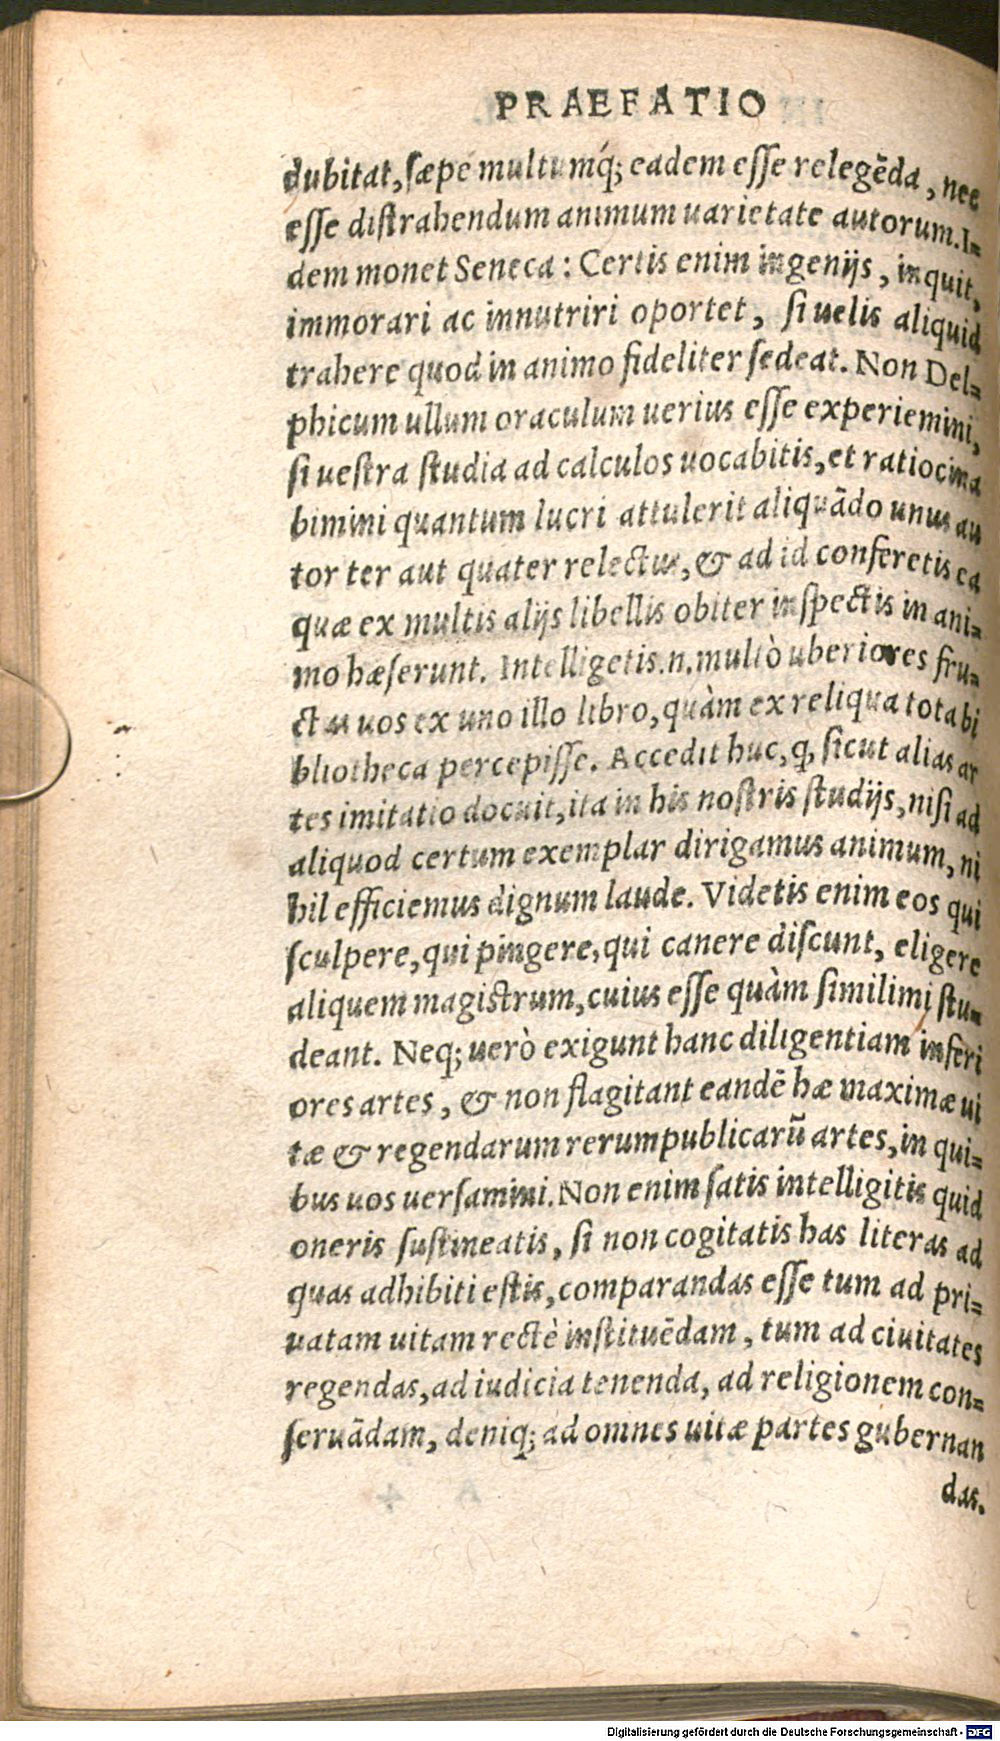 PRAEFATIO
dubitat, sæpe multumq́; eadem esse relegēda, nec
esse distrahendum animum uarietate autorum. I=
dem monet Seneca: Certis enim ingenijs, inquit,
immorari ac innutriri oportet, si uelis aliquid
trahere quod in animo fideliter sedeat. Non Del=
phicum ullum oraculum uerius esse experiemini,
si uestra studia ad calculos uocabitis, et ratiocina
bimini quantum lucri attulerit aliquādo unus au
tor ter aut quater relectus, & ad id conferetis ea
quæ ex multis alijs libellis obiter inspectis in ani=
mo hæserunt. Intelligetis.n.multò uberiores fru=
ctus uos ex uno illo libro, quàm ex reliqua tota bi
bliotheca percepisse. Accedit huc, ꝙ sicut alias ar
tes imitatio docuit, ita in his nostris studijs, nisi ad
aliquod certum exemplar dirigamus animum, ni
hil efficiemus dignum laude. Videtis enim eos qui
sculpere, qui pingere, qui canere discunt, eligere
aliquem magistrum, cuius esse quàm similimi stu=
deant. Neq; uerò exigunt hanc diligentiam inferi
ores artes, & non flagitant eandē hæ maximæ ui
tæ & regendarum rerumpublicarū artes, in qui=
bus uos uersamini. Non enim satis intelligitis quid
oneris sustineatis, si non cogitatis has literas ad
quas adhibiti estis, comparandas esse tum ad pri=
uatam uitam rectè instituēdam, tum ad ciuitates
regendas, ad iudicia tenenda, ad religionem con=
seruādam, deniq; ad omnes uitæ partes gubernan
das.
Digitalisierung gefördert durch die Deutsche Forschungsgemeinschaft - DFG